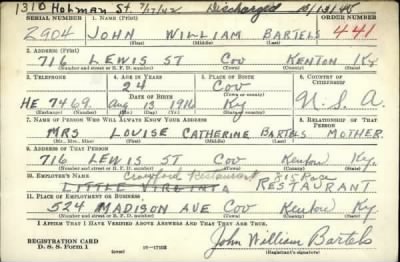 1310 Hohman St. 7/7/42 Discharged 10/13/45
SERIAL NUMBER 1. NAME (Print) ORDER NUMBER
2904 JOHN WILLIAM BARTELS 441
(First) (Middle) (Last)
2. ADDRESS (Print)
716 LEWIS ST COV KENTON KY.
(Number and street or R. F. D. number) (Town) (County) (State)
3. TELEPHONE 4. AGE IN YEARS 5. PLACE OF BIRTH 6. COUNTRY OF CITIZENSHIP
24 Cov
DATE OF BIRTH (Town or county)
HE 7469. Aug 13 1916 Ky U. S. A.
(Exchange) (Number) (Mo.) (Day) (Yr.) (State or country)
7. NAME OF PERSON WHO WILL ALWAYS KNOW YOUR ADDRESS 8. RELATIONSHIP OF THAT PERSON
MRS LOUISE CATHERINE BARTELS MOTHER.
(Mr., Mrs., Miss) (First) (Middle) (Last)
9. ADDRESS OF THAT PERSON
716 LEWIS ST COV Kenton Ky.
(Number and street or R. F. D. number) (Town) (County) (State)
10. EMPLOYER'S NAME Crawford Restaurant
LITTLE VIRGINIA RESTAURANT
11. PLACE OF EMPLOYMENT OR BUSINESS
524 MADISON AVE COV Kenton Ky
(Number and street or R. F. D. number) (Town) (County) (State)
I AFFIRM THAT I HAVE VERIFIED ABOVE ANSWERS AND THAT THEY ARE TRUE.
REGISTRATION CARD
D. S. S. Form 1 (over) 16—17105 John William Bartels
(Registrant's signature)